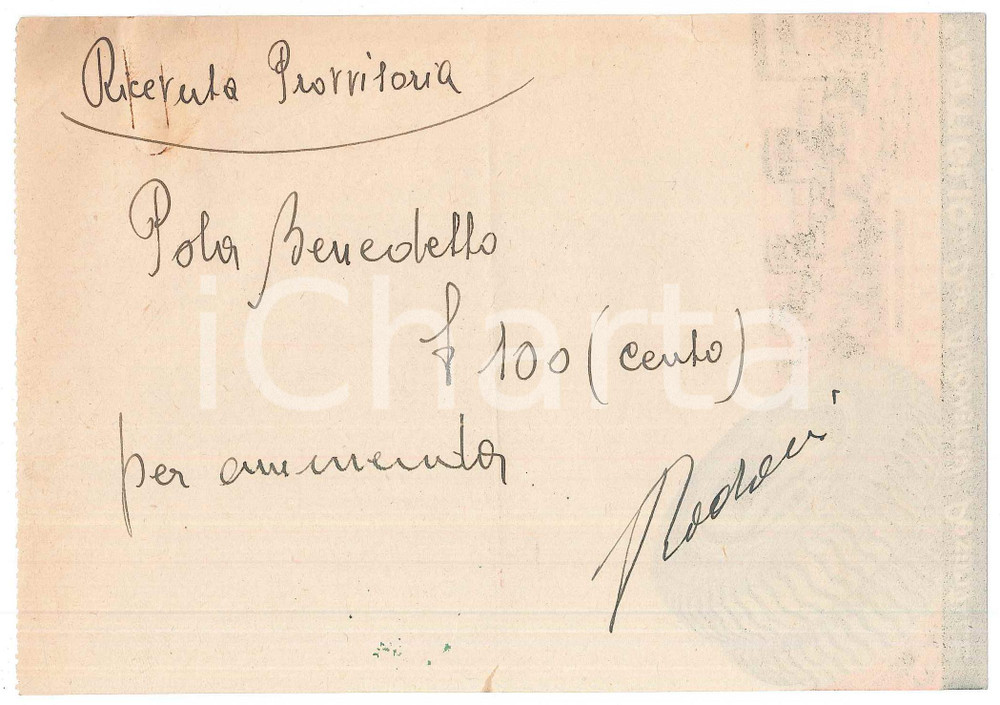 Ricevuta Provvisoria
Pola Benedetto
£ 100 (cento)
per ammenda
iCharta